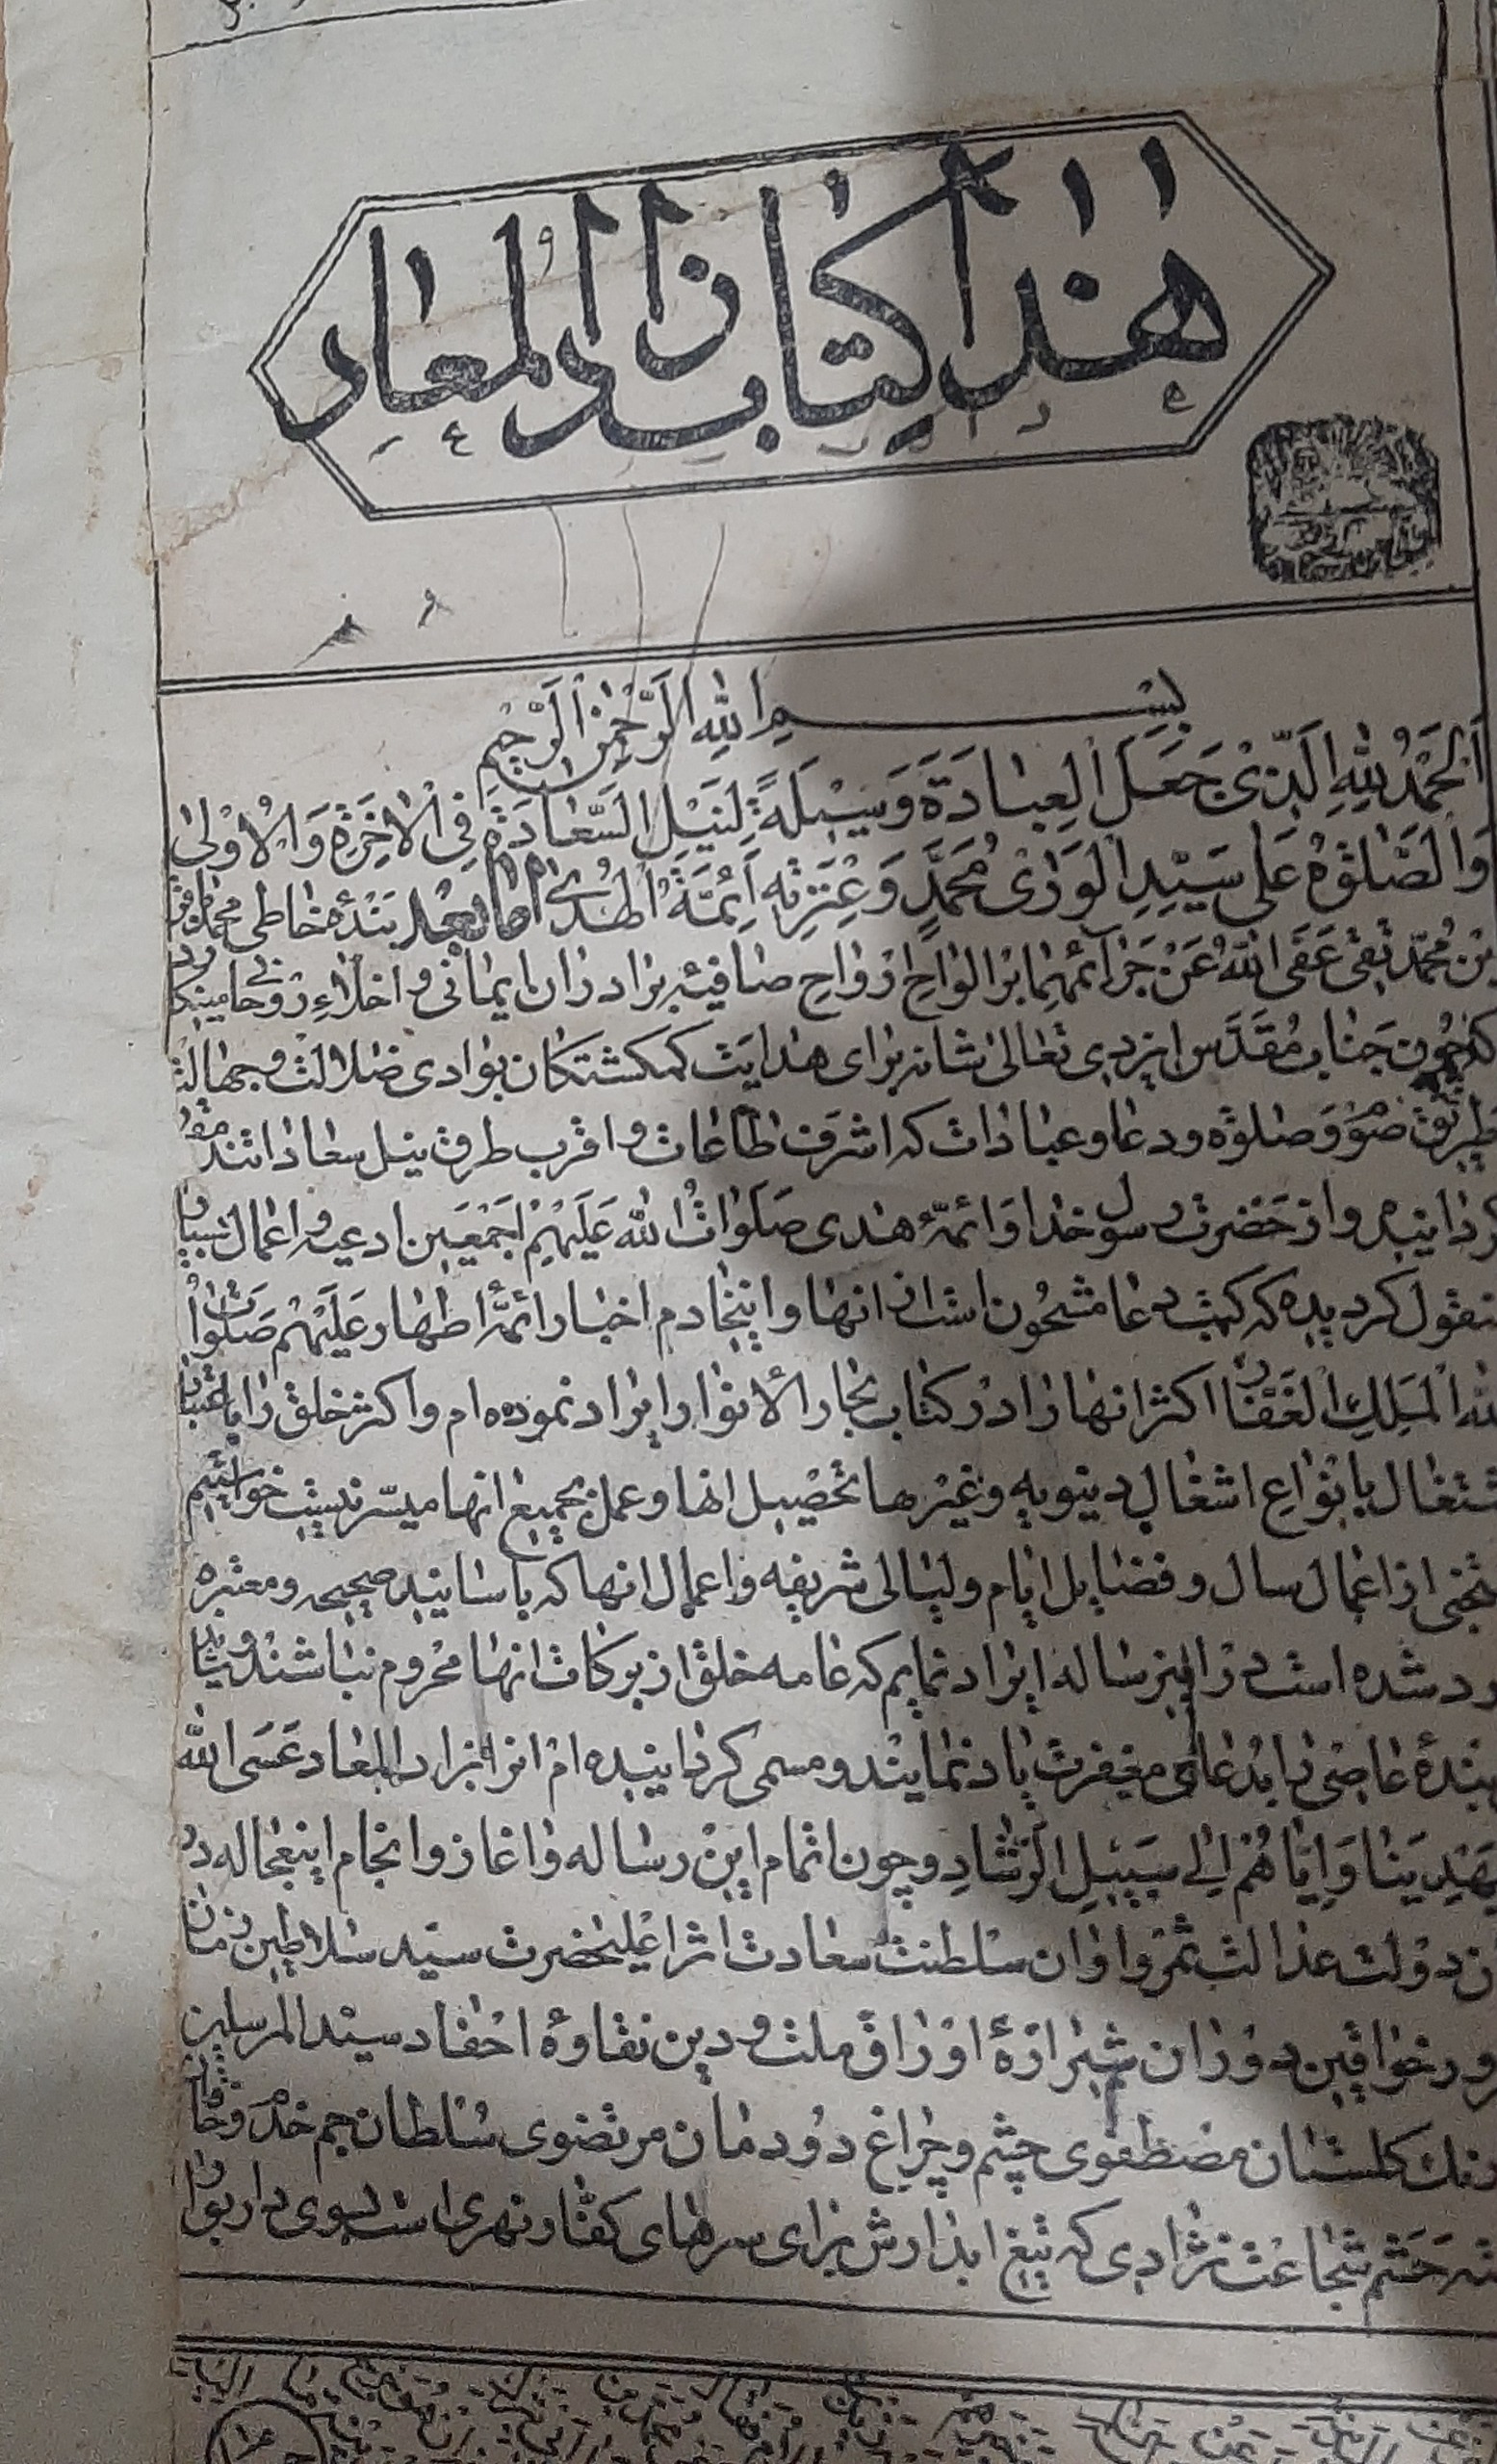 هذا کتاب زاد المعاد
بسم الله الرحمن الرحیم
اَلحَمدُ لِلّهِ الَّذی جَعَلَ العِبادَةَ وَسیلَةً لِنَیلِ السَّعادَةِ فِی الاخِرَةِ وَالاُولی
وَالصَّلوةُ عَلی سَیِّدِ الوَری مُحَمَّدٍ وَعِترَتِهِ اَئِمَّةِ الهُدی اما بعد بَندهٔ خاطی محمد باقر
بن مُحمّد تقی عَفَی اللهُ عَن جَرائمهِما بر الواحِ ارواحِ صافیهٔ برادران ایمانی و اخلاءِ روحانی میکا رد
که چون جناب مُقَدَّس ایزدی تعالی شانه برای هدایت کمکشتکان بوادی ضلالت و جهالت
طریق صوم و صلوة و دعا و عبادات که اشرف طاعات و اقرب طرق نیل سعاداتند مقرر
کردانیده و از حَضرت رسول خدا و ائمهٔ هدی صَلَواتُ اللهِ عَلَیهِم اَجمَعین ادعیه و اعمال بسیار
منقول کردیده که کتب دعا مشحُون است از انها و اینخادم اخبار ائمهٔ اطهار عَلَیهِم صَلَواتُ
اللهِ المَلِکِ الغَفّار اکثر انها را در کتاب بحار الأنوار ایراد نموده ام و اکثر خلق را باعتبار
شتغال بانواعِ اشغال دنیویه و غیرها تحصیل انها و عمل بجمیع انها میسّر نیست خواستم
منتخبی از اعمال سال و فضایل ایام و لیالی شریفه و اعمال انها که باسانید صحیحه و معتبره
رد شده است در اینرساله ایراد نمایم که عامه خلق از برکات انها محروم نباشند و شاید
بندهٔ عاصی را بدعای مغفرت یاد نمایند و مسمی کردانیده ام انرا بزاد المعاد عَسَی الله
یَهدِیَنا وَاِیّاهُم اِلی سَبیلِ الرَّشادِ و چون اتمام این رساله و اغاز و انجام اینعجاله در
ن دولت عدالت ثمر و اوان سلطنت سعادت اثر اعلیحضرت سید سلاطین زمان
رور خواقین دوران شیرازهٔ اوراق ملت و دین نقاوهٔ احفاد سید المرسلین
رنک کلستان مصطفوی چشم و چراغ دودمان مرتضوی سُلطان جم خدم و خاقان
حَشَم شجاعت نژادی که تیغ ابدارش برای سرهای کفار نهری است بسوی دار بوار